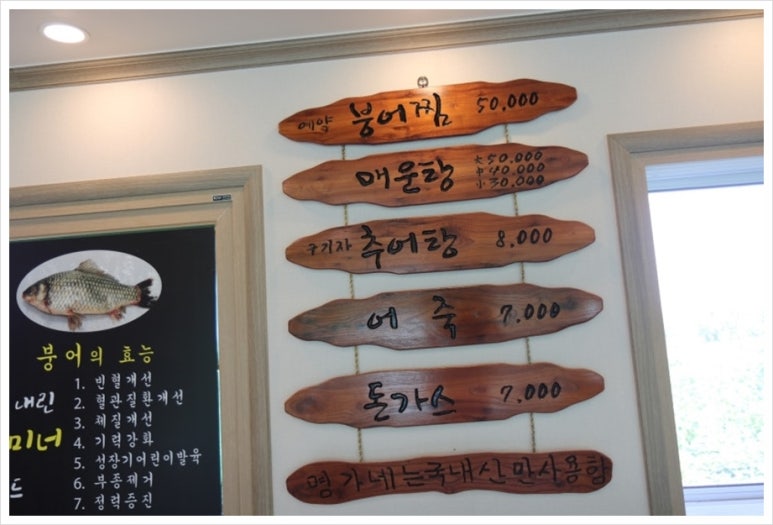 예약 붕어찜 50,000
매운탕 大 50,000
中 40,000
小 30,000
구기자 추어탕 8,000
어죽 7,000
돈가스 7,000
명가네는국내산만사용함
붕어의 효능
1. 빈혈개선
내린 2. 혈관질환개선
3. 체질개선
미너 4. 기력강화
5. 성장기어린이발육
드 6. 부종제거
7. 정력증진